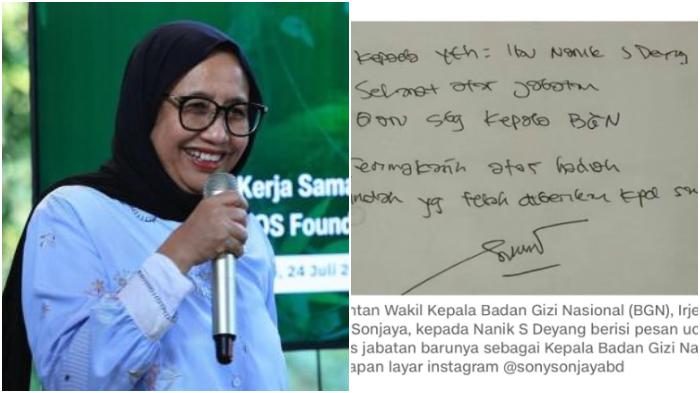 Kerja Sama
OS Found
, 24 Juli 2
Kepada Yth: Ibu Nanik S Deyang
Selamat atas jabatan
Baru sbg Kepala BGN
Terimakasih atas hadiah
indah yg telah diberikan kpd
ntan Wakil Kepala Badan Gizi Nasional (BGN), Irje
Sonjaya, kepada Nanik S Deyang berisi pesan uc
s jabatan barunya sebagai Kepala Badan Gizi Na
apan layar instagram @sonysonjayabd